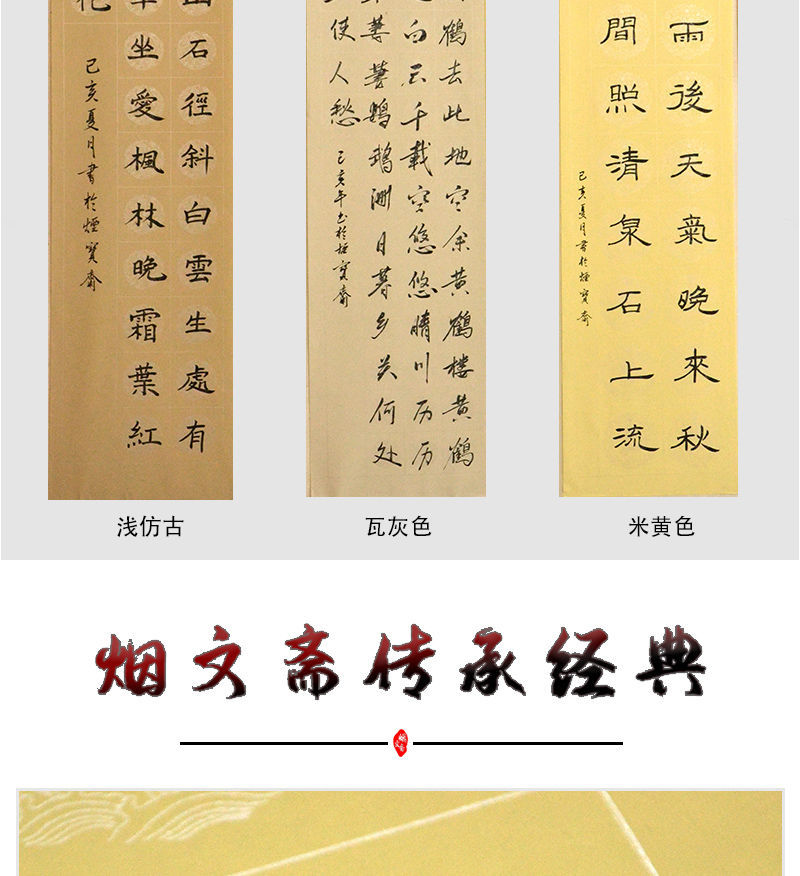 山石徑斜白雲生處有
車坐愛楓林晚霜葉紅
花
己亥夏月書於煙寶齋
鶴去此地空余黄鶴楼黄鶴
返白云千載空悠悠晴川历历
草萋萋鸚鵡洲日暮乡关何处
上使人愁
己亥年书於煙寶齋
雨後天氣晚來秋
間照清泉石上流
己亥夏月書於煙寶齋
浅仿古
瓦灰色
米黄色
烟文斋传承经典